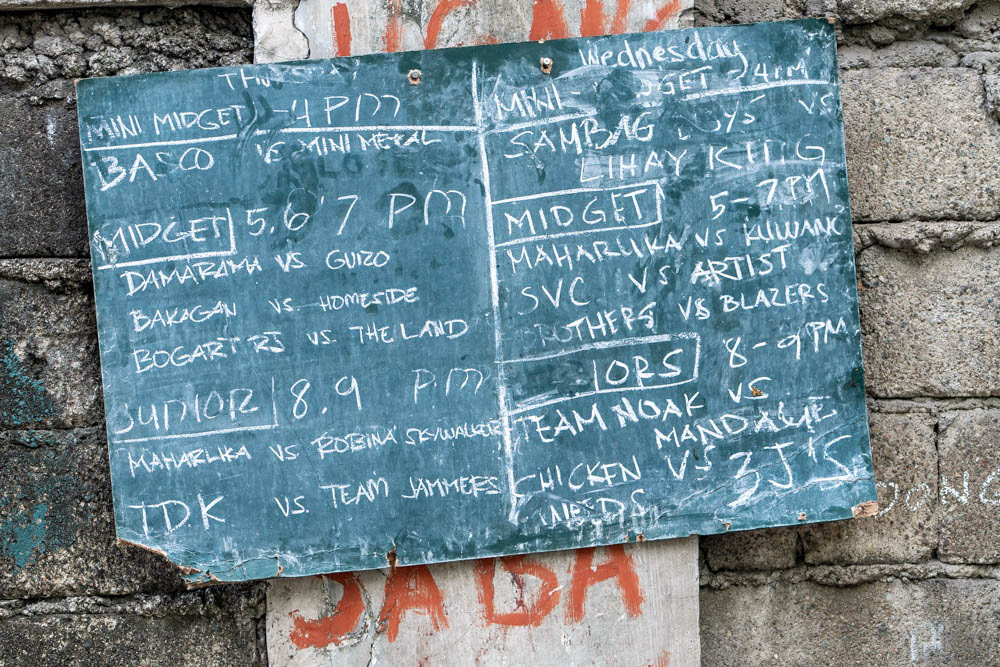 MINI MIDGET - 4 PM
BASCO VS MINI METAL
MIDGET 5.6'7 PM
DAMARAMA VS GUIZO
BAKAGAN VS. HOMESIDE
BOGART RJ VS. THE LAND
JUNIOR 8.9 PM
MAHARLIKA VS ROBINA SKYWALKER
TDK VS. TEAM JAMMERS
Wednesday
MINI - GET - 4PM
SAMBAG YS VS
LIHAY KING
MIDGET 5-7PM
MAHARLIKA VS KUWANG
SVC VS ARTIST
BROTHERS VS BLAZERS
IORS 8-9PM
TEAM NOAK VS
MANDAUE
CHICKEN VS 3J'S
NEEDS
SABA